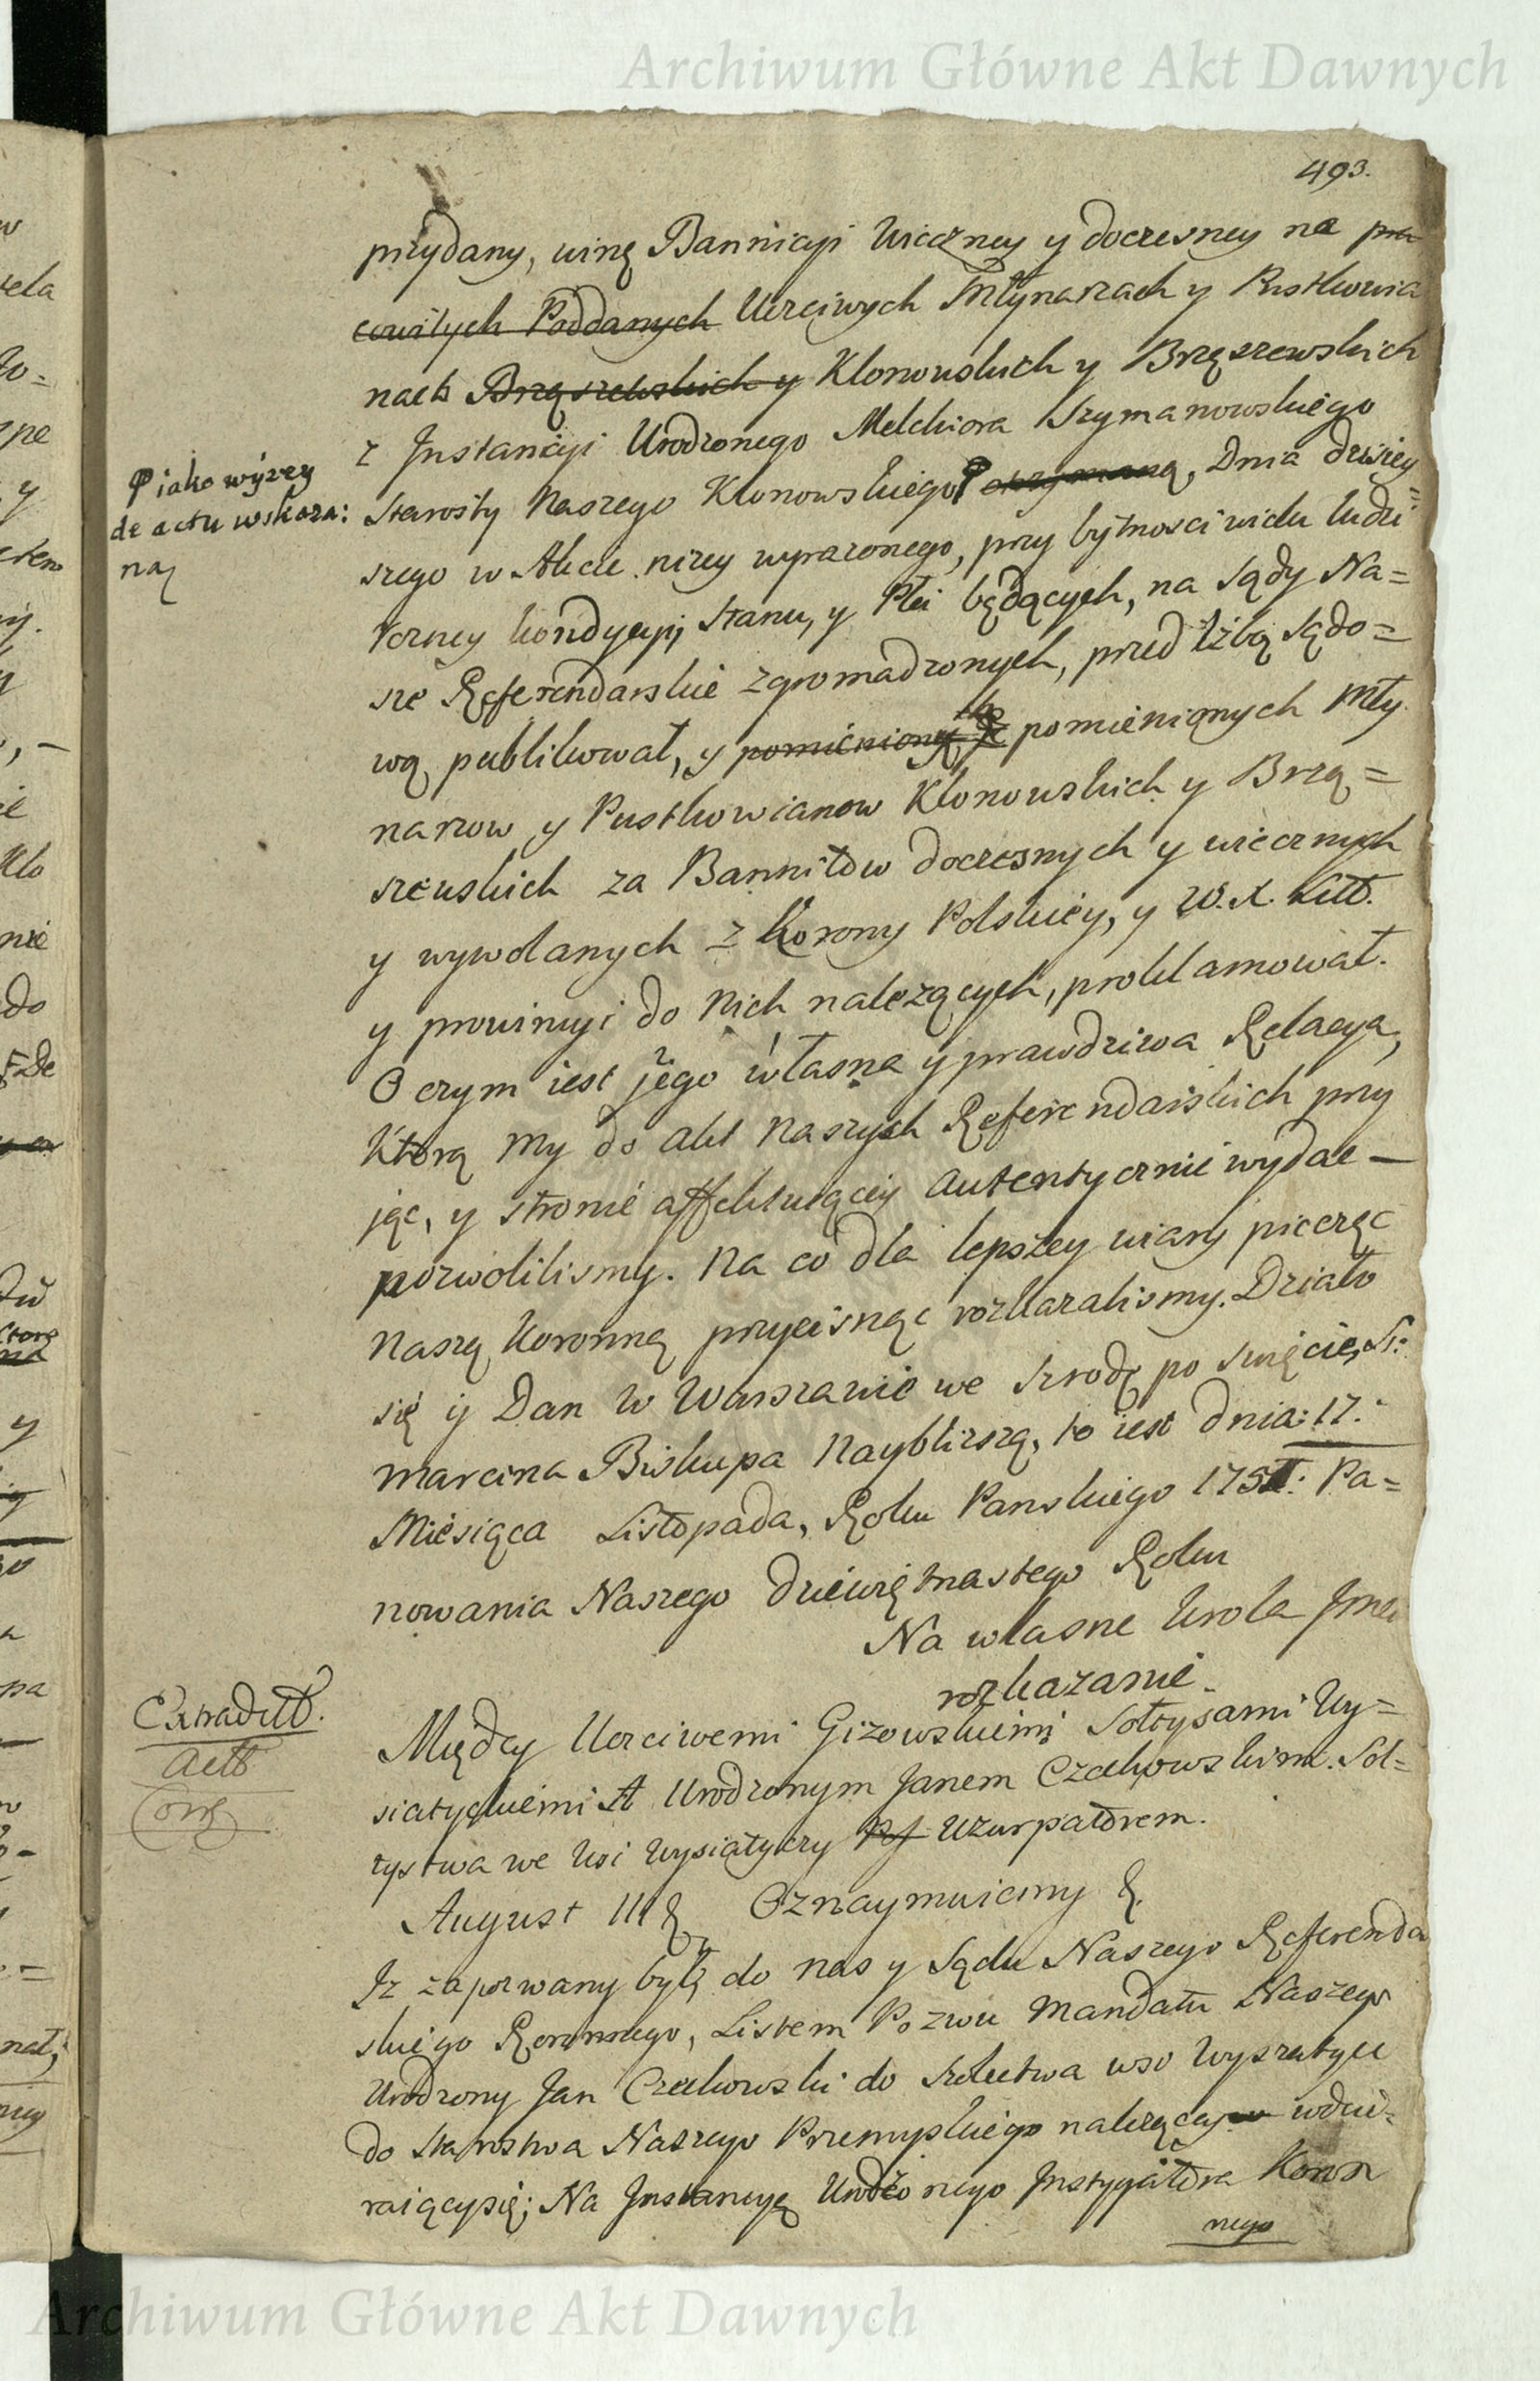 Archiwum Główne Akt Dawnych
493.
przydany, winę Bannicyi Wieczney y doczesney na pra
cowitych Poddanych Uczciwych Młynarzach y Pustkowia
nach Brzęszewskich y Klonowskich y Brzęszewskich
z Instancyi Urodzonego Melchiora Szymanowskiego
Starosty Naszego Klonowskiego otrzymaną, Dnia dzisiey=
szego w Akcie nizey wyrazonego, przy bytnosci wielu ludzi
rozney kondycyi, Stanu, y Płci będących, na Sądy Na=
sze Referendarskie zgromadzonych, przed Izbą Sądo=
wą publikował, y pomienionych pomienionych Mły
narzow y Pustkowianow Klonowskich y Brzą=
szewskich za Bannitow doczesnych y wiecznych
y wywołanych z Korony Polskiey, y W. X. Litt.
y prowincyi do Nich nalezących, proklamował.
O czym iest jego własna y prawdziwa Relacya,
Którą My do Akt Naszych Referendarskich przy
jąc, y stronie affektuiącey autentycznie wydac –
pozwolilismy. Na co dla lepszey wiary pieczęc
Naszą Koronną przycisnąc rozkazalismy. Działo
się y Dan w Warszawie we Srzodę po Swięcie S:
Marcina Biskupa Nayblizszą, to iest dnia: 17.
Miesiąca Listopada, Roku Panskiego 175 : Pa=
nowania Naszego dziewiętnastego Roku
Na własne Krola Jmci
rozkazanie.
Piako wyzey
de actu wskaza:
ną
Extradittt.
Actt.
Corr
Między Uczciwemi Gizowskiemi Sołtysami Wy=
siatyckiemi A Urodzonym Janem Czachowskim. Soł=
tystwa we Wsi Wysiatyczy Uzurpatorem.
August III & Oznaymuiemy &.
Iz zapozwany był do nas y Sądu Naszego Referenda
skiego Koronnego, Listem Pozwu Mandatu Naszego
Urodzony Jan Czachowski do Szołectwa wso Wyszatyce
do Starostwa Naszego Przemyskiego nalezącey wdzie=
raiącysię; Na Instancyą Urodzonego Instygatora Koron
nego
Archiwum Główne Akt Dawnych